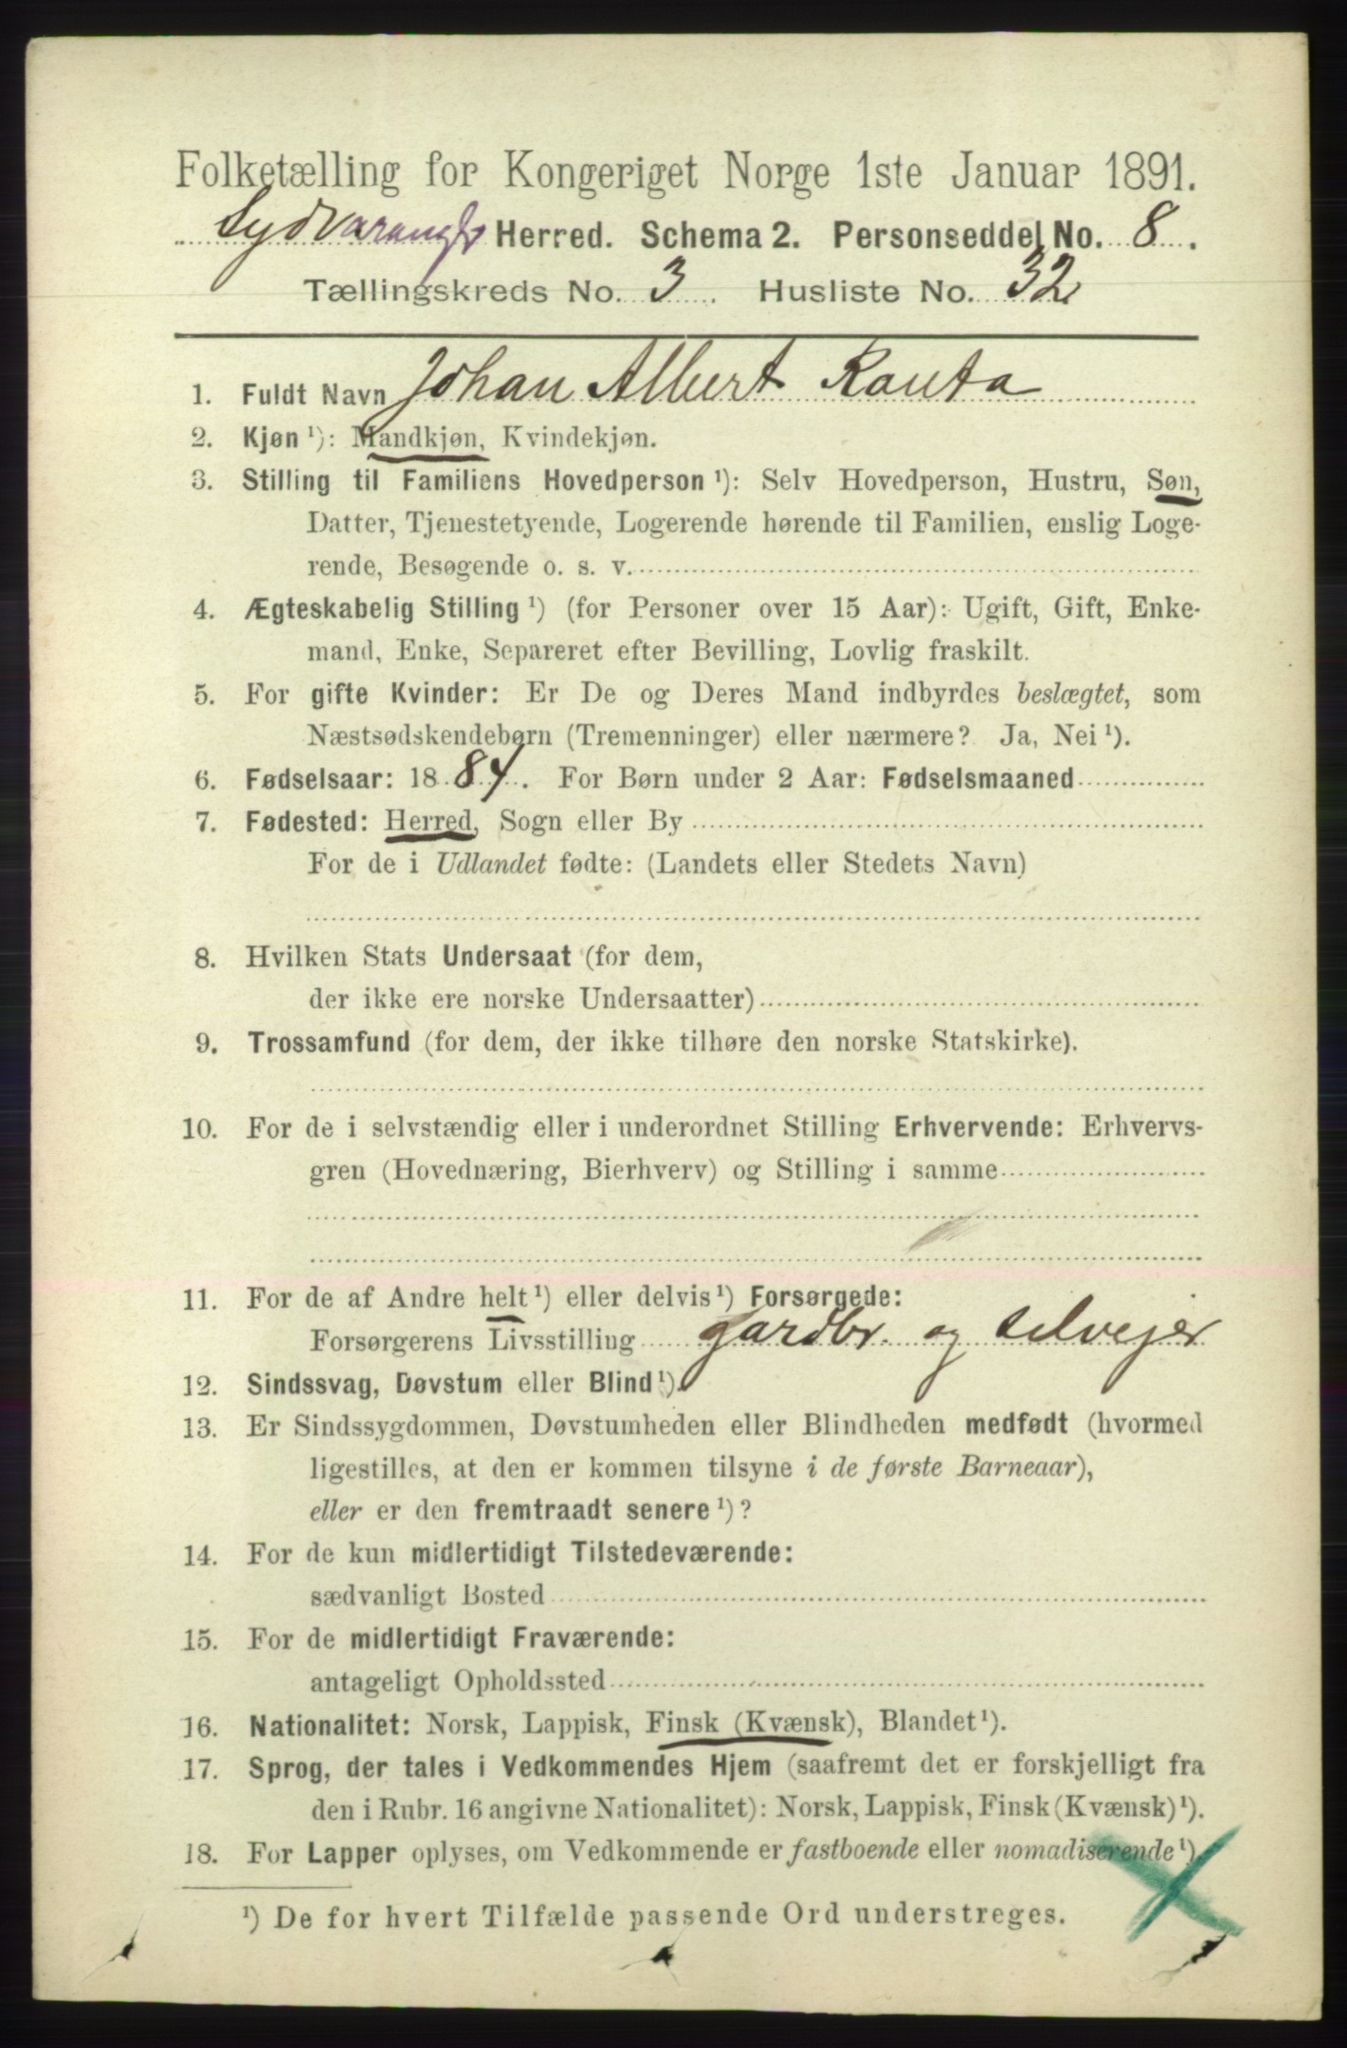 Folketælling for Kongeriget Norge 1ste Januar 1891.
Sydvaranger Herred. Schema 2. Personseddel No. 8.
Tællingskreds No. 3. Husliste No. 32
1. Fuldt Navn Johan Albert Rauta
2. Kjøn ¹): Mandkjøn, Kvindekjøn.
3. Stilling til Familiens Hovedperson ¹): Selv Hovedperson, Hustru, Søn,
Datter, Tjenestetyende, Logerende hørende til Familien, enslig Loge-
rende, Besøgende o. s. v.
4. Ægteskabelig Stilling ¹) (for Personer over 15 Aar): Ugift, Gift, Enke-
mand, Enke, Separeret efter Bevilling, Lovlig fraskilt.
5. For gifte Kvinder: Er De og Deres Mand indbyrdes beslægtet, som
Næstsødskendebørn (Tremenninger) eller nærmere? Ja, Nei ¹).
6. Fødselsaar: 1884. For Børn under 2 Aar: Fødselsmaaned
7. Fødested: Herred, Sogn eller By
For de i Udlandet fødte: (Landets eller Stedets Navn)
8. Hvilken Stats Undersaat (for dem,
der ikke ere norske Undersaatter)
9. Trossamfund (for dem, der ikke tilhøre den norske Statskirke).
10. For de i selvstændig eller i underordnet Stilling Erhvervende: Erhvervs-
gren (Hovednæring, Bierhverv) og Stilling i samme
11. For de af Andre helt ¹) eller delvis ¹) Forsørgede:
Forsørgerens Livsstilling gardbr. og selvejer
12. Sindssvag, Døvstum eller Blind ¹).
13. Er Sindssygdommen, Døvstumheden eller Blindheden medfødt (hvormed
ligestilles, at den er kommen tilsyne i de første Barneaar),
eller er den fremtraadt senere ¹)?
14. For de kun midlertidigt Tilstedeværende:
sædvanligt Bosted
15. For de midlertidigt Fraværende:
antageligt Opholdssted
16. Nationalitet: Norsk, Lappisk, Finsk (Kvænsk), Blandet ¹).
17. Sprog, der tales i Vedkommendes Hjem (saafremt det er forskjelligt fra
den i Rubr. 16 angivne Nationalitet): Norsk, Lappisk, Finsk (Kvænsk) ¹).
18. For Lapper oplyses, om Vedkommende er fastboende eller nomadiserende ¹).
¹) De for hvert Tilfælde passende Ord understreges.